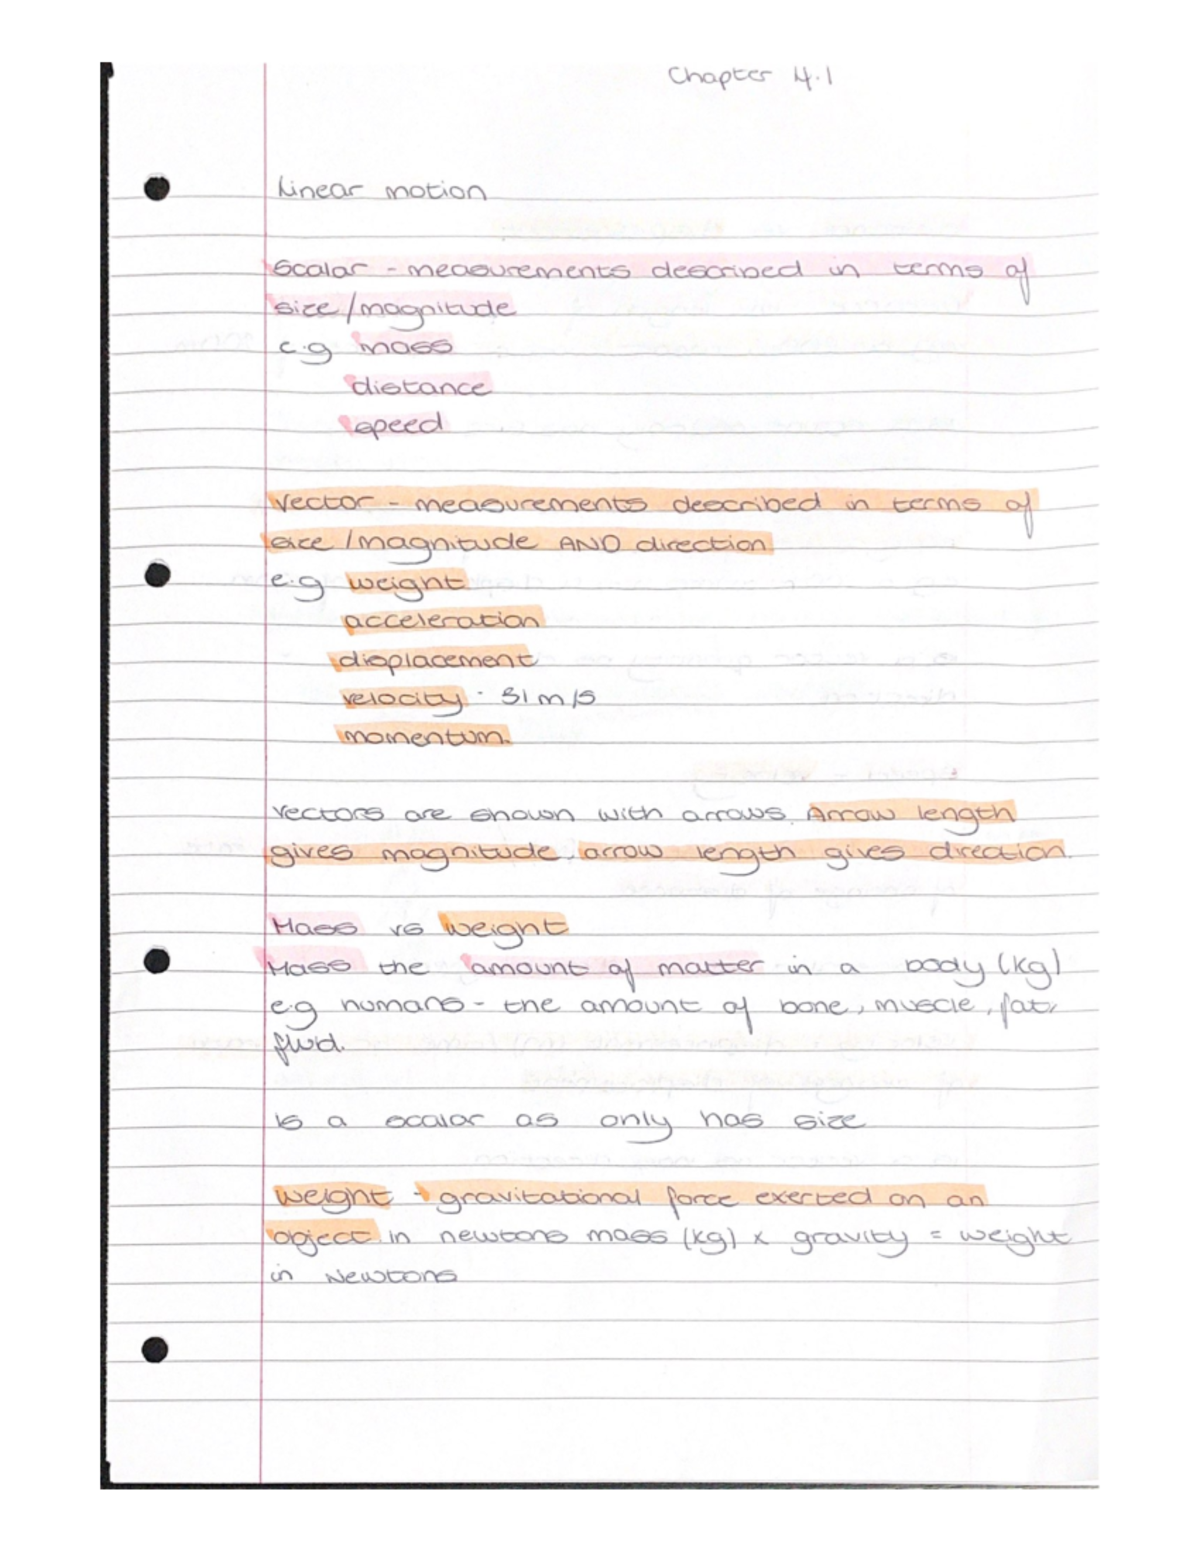 Chapter 4.1
Linear motion
Scalar - measurements described in terms of
size/magnitude
e.g mass
distance
speed
Vector - measurements described in terms of
size/magnitude AND direction
e.g weight
acceleration
displacement
velocity · 31 m/s
momentum.
Vectors are shown with arrows. Arrow length
gives magnitude, arrow length gives direction.
Mass vs weight
Mass the amount of matter in a body (kg)
e.g humans - the amount of bone, muscle, fat,
fluid.
is a scalar as only has size
weight - gravitational force exerted on an
object in newtons mass (kg) x gravity = weight
in Newtons